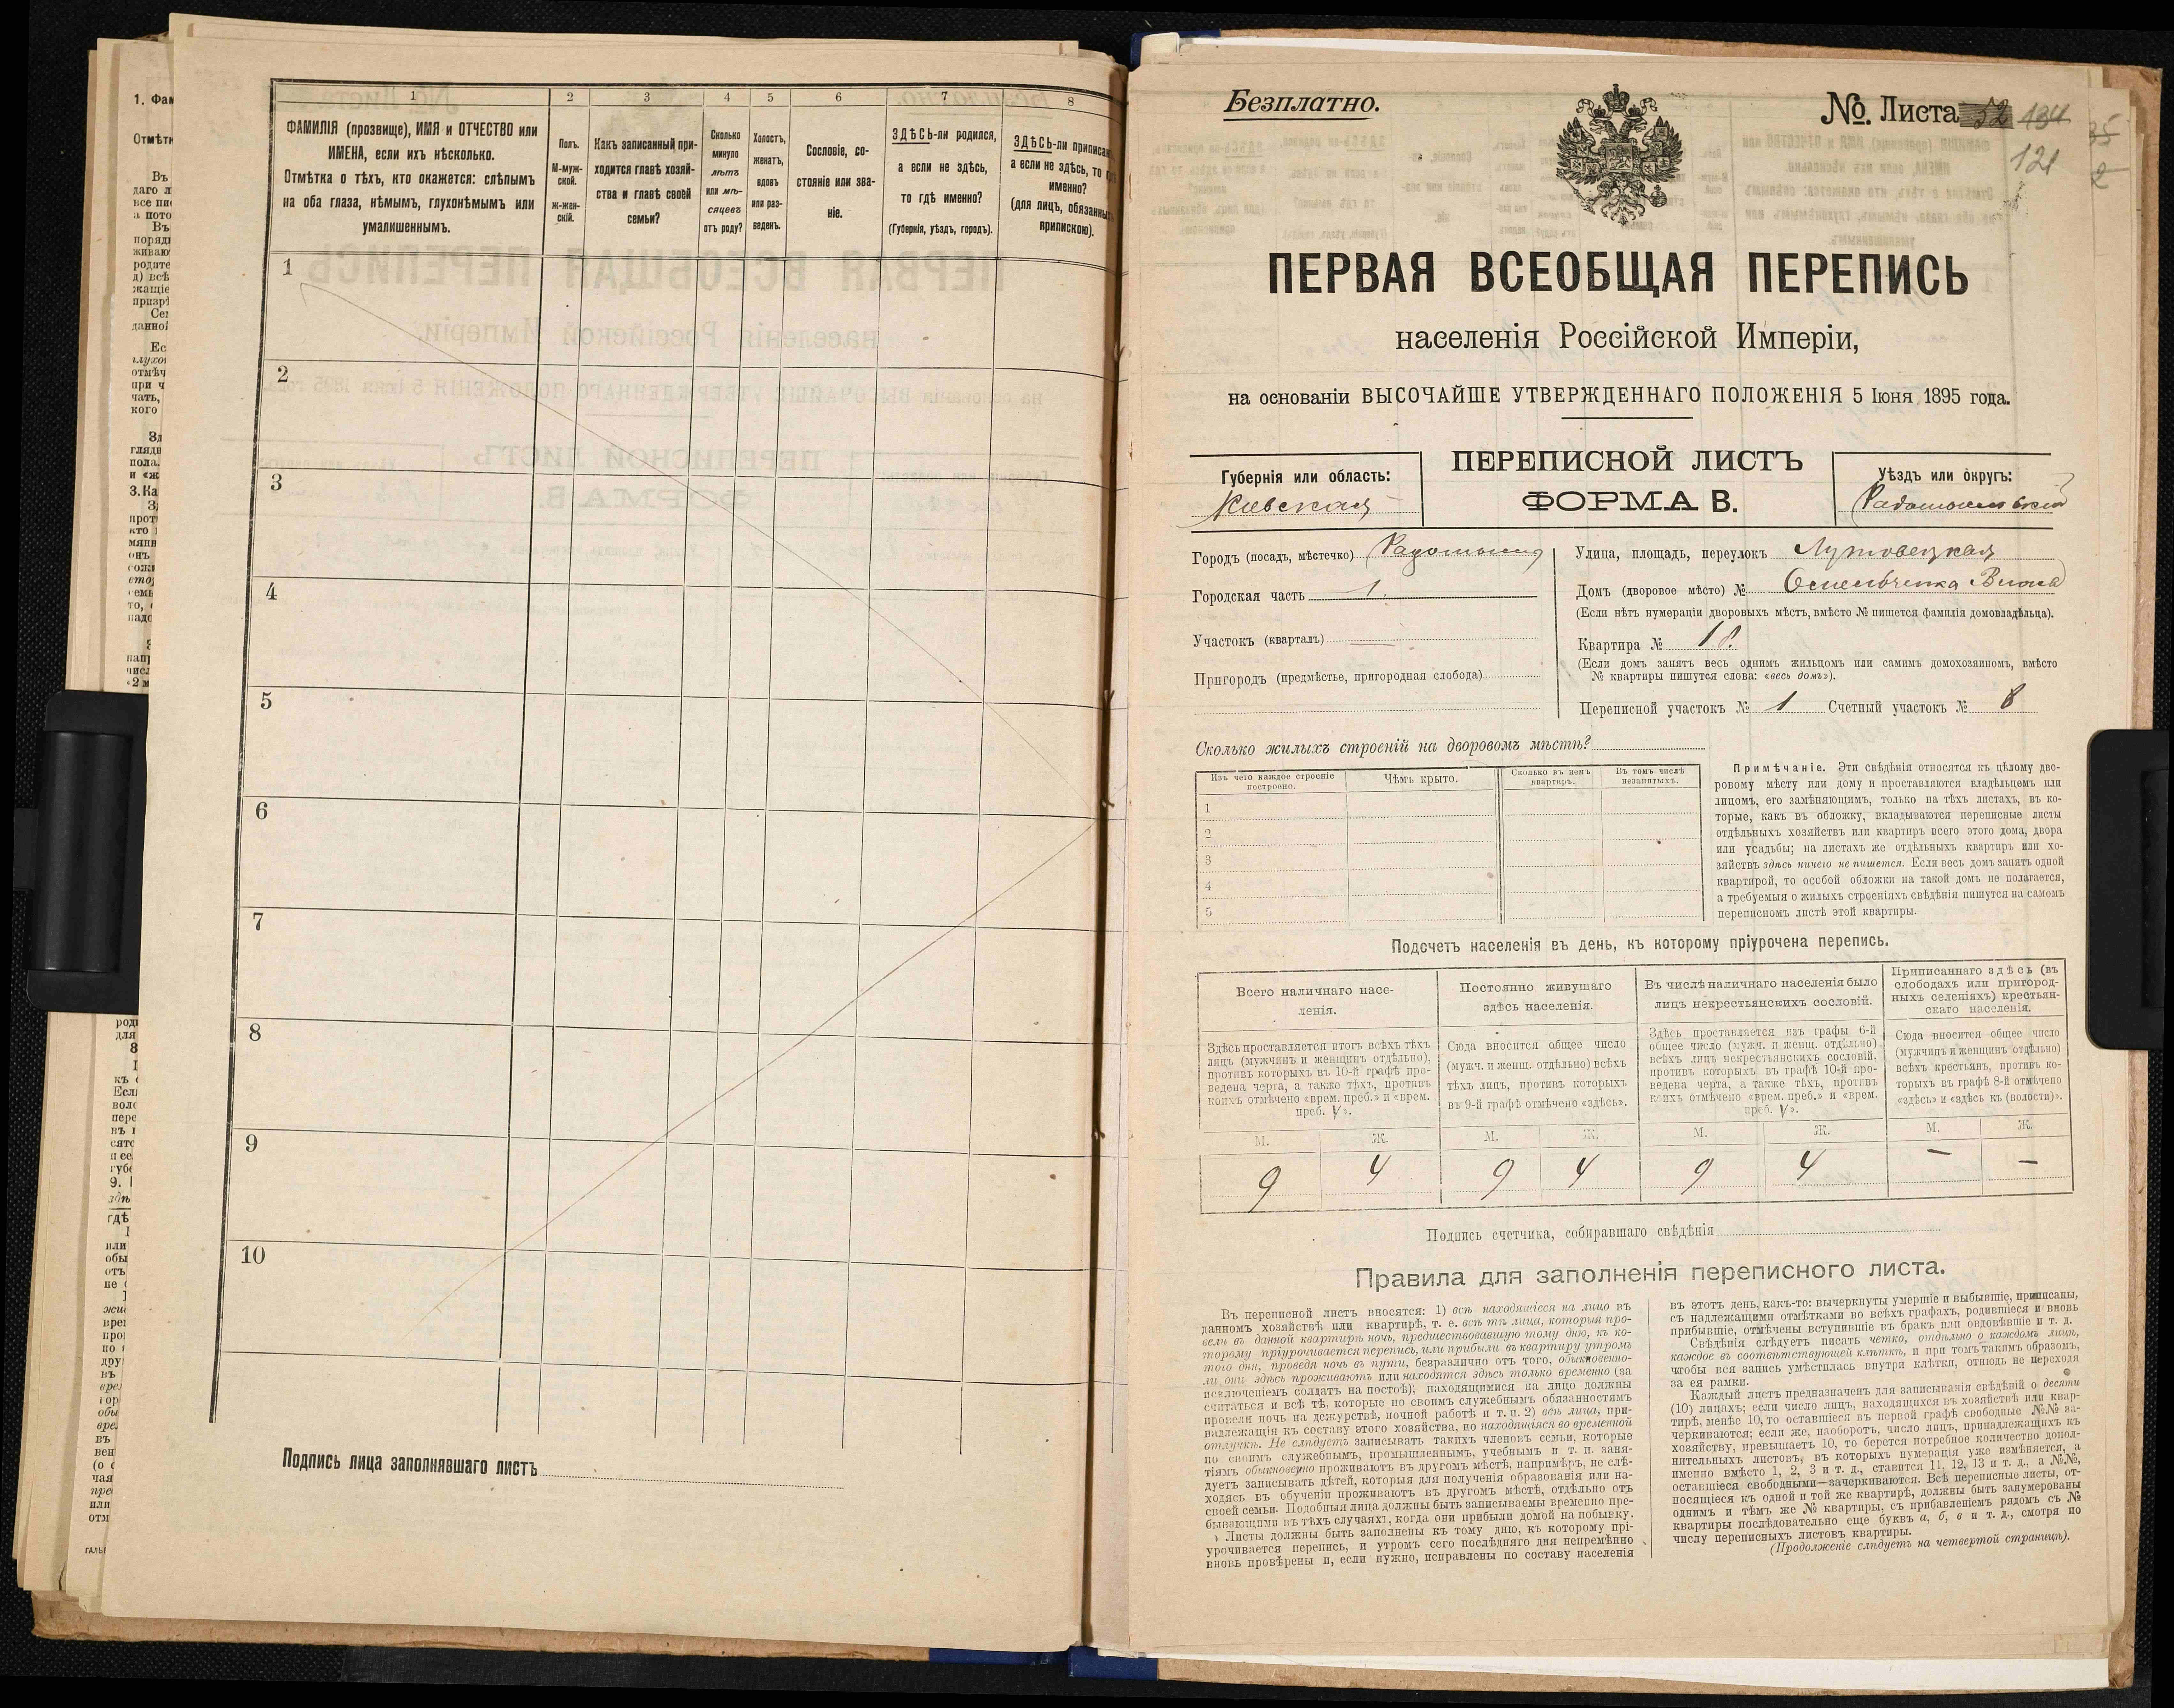 1
2
3
4
5
6
7
8
ФАМИЛІЯ (прозвище), ИМЯ и ОТЧЕСТВО или
ИМЕНА, если ихъ нѣсколько.
Отмѣтка о тѣхъ, кто окажется: слѣпымъ
на оба глаза, нѣмымъ, глухонѣмымъ или
умалишеннымъ.
Полъ.
М-муж-
ской.
Ж-жен-
скій.
Какъ записанный при-
ходится главѣ хозяй-
ства и главѣ своей
семьи?
Сколько
минуло
лѣтъ
или мѣ-
сяцевъ
отъ роду?
Холостъ,
женатъ,
вдовъ
или раз-
веденъ.
Сословіе, со-
стояніе или зва-
ніе.
ЗДѢСЬ-ли родился,
а если не здѣсь,
то гдѣ именно?
(Губернія, уѣздъ, городъ).
ЗДѢСЬ-ли приписанъ
а если не здѣсь, то
именно?
(для лицъ, обязанныхъ
припискою).
1
2
3
4
5
6
7
8
9
10
Подпись лица заполнявшаго листъ
Безплатно.
№. Листа 52 134
121
ПЕРВАЯ ВСЕОБЩАЯ ПЕРЕПИСЬ
населенія Россійской Имперіи,
на основаніи ВЫСОЧАЙШЕ УТВЕРЖДЕННАГО ПОЛОЖЕНІЯ 5 Іюня 1895 года.
Губернія или область:
Кіевская
ПЕРЕПИСНОЙ ЛИСТЪ
ФОРМА В.
Уѣздъ или округъ:
Радомысльскій
Городъ (посадъ, мѣстечко) Радомысль
Городская часть 1.
Участокъ (кварталъ)
Пригородъ (предмѣстье, пригородная слобода)
Улица, площадь, переулокъ
Домъ (дворовое мѣсто) №
(Если нѣтъ нумераціи дворовыхъ мѣстъ, вмѣсто № пишется фамилія домовладѣльца).
Квартира № 18.
(Если домъ занятъ весь однимъ жильцомъ или самимъ домохозяиномъ, вмѣсто
№ квартиры пишутся слова: «весь домъ»).
Переписной участокъ № 1 Счетный участокъ № 8
Сколько жилыхъ строеній на дворовомъ мѣстѣ?
Изъ чего каждое строеніе
построено.
Чѣмъ крыто.
Сколько въ немъ
квартиръ.
Въ томъ числѣ
незанятыхъ.
1
2
3
4
5
Примѣчаніе. Эти свѣдѣнія относятся къ цѣлому дво-
ровому мѣсту или дому и проставляются владѣльцемъ или
лицомъ, его замѣняющимъ, только на тѣхъ листахъ, въ ко-
торые, какъ въ обложку, вкладываются переписные листы
отдѣльныхъ хозяйствъ или квартиръ всего этого дома, двора
или усадьбы; на листахъ же отдѣльныхъ квартиръ или хо-
зяйствъ здѣсь ничего не пишется. Если весь домъ занятъ одной
квартирой, то особой обложки на такой домъ не полагается,
а требуемыя о жилыхъ строеніяхъ свѣдѣнія пишутся на самомъ
переписномъ листѣ этой квартиры.
Подсчетъ населенія въ день, къ которому пріурочена перепись.
Всего наличнаго насе-
ленія.
Постоянно живущаго
здѣсь населенія.
Въ числѣ наличнаго населенія было
лицъ некрестьянскихъ сословій.
Приписаннаго здѣсь (въ
слободахъ или пригород-
ныхъ селеніяхъ) крестьян-
скаго населенія.
Здѣсь проставляется итогъ всѣхъ тѣхъ
лицъ (мужчинъ и женщинъ отдѣльно),
противъ которыхъ въ 10-й графѣ про-
ведена черта, а также тѣхъ, противъ
коихъ отмѣчено «врем. преб.» и «врем.
преб. V».
Сюда вносится общее число
(мужч. и женщ. отдѣльно) всѣхъ
тѣхъ лицъ, противъ которыхъ
въ 9-й графѣ отмѣчено «здѣсь».
Здѣсь проставляется изъ графы 6-й
общее число (мужч. и женщ. отдѣльно)
всѣхъ лицъ некрестьянскихъ сословій,
противъ которыхъ въ графѣ 10-й про-
ведена черта, а также тѣхъ, противъ
коихъ отмѣчено «врем. преб.» и «врем.
преб. V».
Сюда вносится общее число
(мужчинъ и женщинъ отдѣльно)
всѣхъ крестьянъ, противъ ко-
торыхъ въ графѣ 8-й отмѣчено
«здѣсь» и «здѣсь къ (волости)».
М. Ж. М. Ж. М. Ж. М. Ж.
9 4 9 4 9 4 – –
Подпись счетчика, собиравшаго свѣдѣнія
Правила для заполненія переписного листа.
Въ переписной листъ вносятся: 1) всѣ находящіеся на лицо въ
данномъ хозяйствѣ или квартирѣ, т. е. всѣ тѣ лица, которыя про-
вели въ данной квартирѣ ночь, предшествовавшую тому дню, къ ко-
торому пріурочивается перепись, или прибыли въ квартиру утромъ
того дня, проведя ночь въ пути, безразлично отъ того, обыкновенно-
ли они здѣсь проживаютъ или находятся здѣсь только временно (за
исключеніемъ солдатъ на постоѣ); находящимися на лицо должны
считаться и всѣ тѣ, которые по своимъ служебнымъ обязанностямъ
провели ночь на дежурствѣ, ночной работѣ и т. п. 2) всѣ лица, при-
надлежащія къ составу этого хозяйства, но находящіяся во временной
отлучкѣ. Не слѣдуетъ записывать такихъ членовъ семьи, которые
по своимъ служебнымъ, промышленнымъ, учебнымъ и т. п. заня-
тіямъ обыкновенно проживаютъ въ другомъ мѣстѣ, напримѣръ, не слѣ-
дуетъ записывать дѣтей, которыя для полученія образованія или на-
ходясь въ обученіи проживаютъ въ другомъ мѣстѣ, отдѣльно отъ
своей семьи. Подобныя лица должны быть записываемы временно пре-
бывающими въ тѣхъ случаяхъ, когда они прибыли домой на побывку.
Листы должны быть заполнены къ тому дню, къ которому прі-
урочивается перепись, и утромъ сего послѣдняго дня непремѣнно
вновь провѣрены и, если нужно, исправлены по составу населенія
въ этотъ день, какъ-то: вычеркнуты умершіе и выбывшіе, приписаны,
съ надлежащими отмѣтками во всѣхъ графахъ, родившіеся и вновь
прибывшіе, отмѣчены вступившіе въ бракъ или овдовѣвшіе и т. д.
Свѣдѣнія слѣдуетъ писать четко, отдѣльно о каждомъ лицѣ,
каждое въ соотвѣтствующей клѣткѣ, и при томъ такимъ образомъ,
чтобы вся запись умѣстилась внутри клѣтки, отнюдь не переходя
за ея рамки.
Каждый листъ предназначенъ для записыванія свѣдѣній о десяти
(10) лицахъ; если число лицъ, находящихся въ хозяйствѣ или квар-
тирѣ, менѣе 10, то оставшіеся въ первой графѣ свободные №№ за-
черкиваются; если же, наоборотъ, число лицъ, принадлежащихъ къ
хозяйству, превышаетъ 10, то берется потребное количество допол-
нительныхъ листовъ, въ которыхъ нумерація уже измѣняется, а
именно вмѣсто 1, 2, 3 и т. д., ставится 11, 12, 13 и т. д., а №№,
оставшіеся свободными—зачеркиваются. Всѣ переписные листы, от-
носящіеся къ одной и той же квартирѣ, должны быть занумерованы
однимъ и тѣмъ же № квартиры, съ прибавленіемъ рядомъ съ №
квартиры послѣдовательно еще буквъ а, б, в и т. д., смотря по
числу переписныхъ листовъ квартиры.
(Продолженіе слѣдуетъ на четвертой страницѣ).